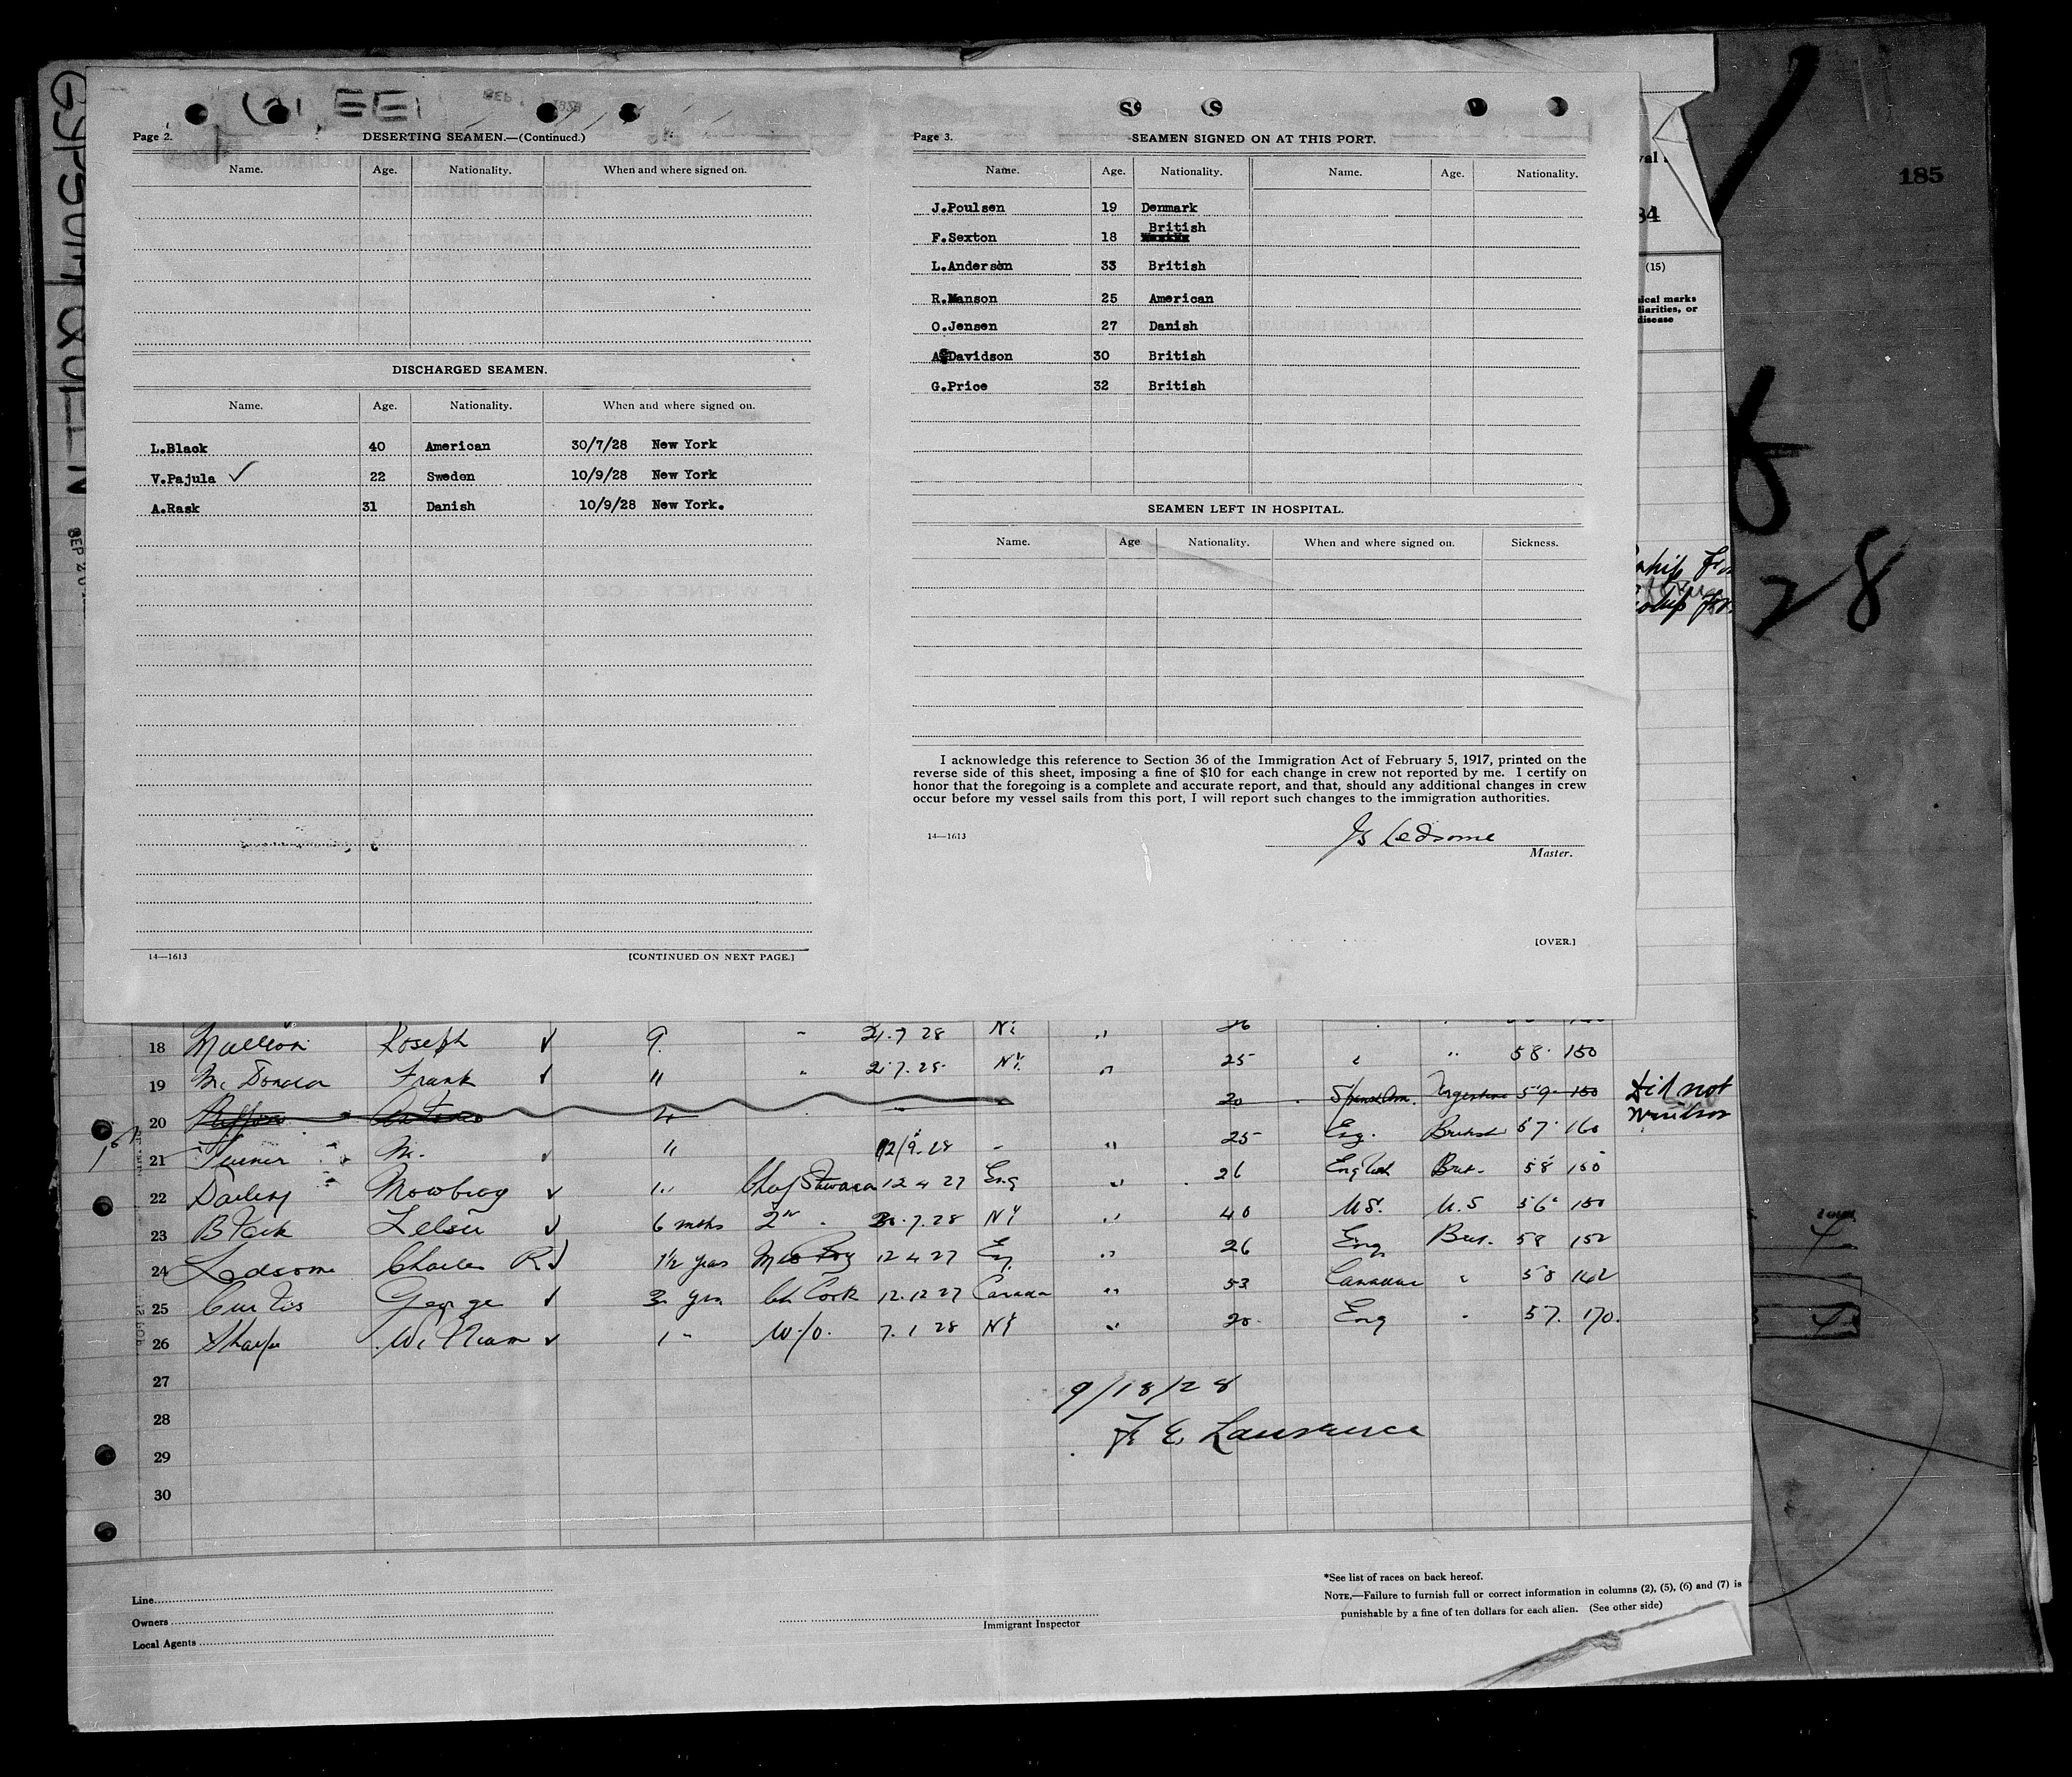 GYPSUM QUEEN
185
Page 2. DESERTING SEAMEN.—(Continued.)
Name. Age. Nationality. When and where signed on.
DISCHARGED SEAMEN.
Name. Age. Nationality. When and where signed on.
L.Black 40 American 30/7/28 New York
V.Pajula ✓ 22 Sweden 10/9/28 New York
A.Rask 31 Danish 10/9/28 New York.
14—1613 [CONTINUED ON NEXT PAGE.]
Page 3. SEAMEN SIGNED ON AT THIS PORT.
Name. Age. Nationality. Name. Age. Nationality.
J.Poulsen 19 Denmark
F.Sexton 18 British
L.Anderson 33 British
R.Manson 25 American
O.Jensen 27 Danish
A.Davidson 30 British
G.Price 32 British
SEAMEN LEFT IN HOSPITAL.
Name. Age Nationality. When and where signed on. Sickness.
I acknowledge this reference to Section 36 of the Immigration Act of February 5, 1917, printed on the
reverse side of this sheet, imposing a fine of $10 for each change in crew not reported by me. I certify on
honor that the foregoing is a complete and accurate report, and that, should any additional changes in crew
occur before my vessel sails from this port, I will report such changes to the immigration authorities.
14—1613 Ledsome
Master.
[OVER.]
(15)
ical marks
liarities, or
disease
28
18 Joseph ✓ 9. 21.7 28 NY "
19 Mc Donald Frank ✓ " 2.7.28 NY " 25 " 58 150
20 20 59 150 Did not
21 Turner M. ✓ " 12/9.28 " 25 Eng. British 57 160
22 Mowbray ✓ 1 " Chief Steward 12 4 27 Eng " 26 English Brit. 58 150
23 Black ✓ 6 mths 2nd 7.28 NY " 40 U.S. U.S 56 150
24 Ledsome Charles R ✓ 1½ years Mess Boy 12 4 27 Eng " 26 Eng Brit. 58 152
25 Curtis George ✓ 3 yrs Ch Cook 12.12 27 Canada " 53 Canadian " 58 162
26 Sharpe William ✓ 1 " W/o. 7.1 28 NY " 20 Eng " 57. 170.
27
28
29
30
9/18/28
F E Lawrence
Line
Owners
Local Agents
Immigrant Inspector
*See list of races on back hereof.
NOTE.—Failure to furnish full or correct information in columns (2), (5), (6) and (7) is
punishable by a fine of ten dollars for each alien. (See other side)